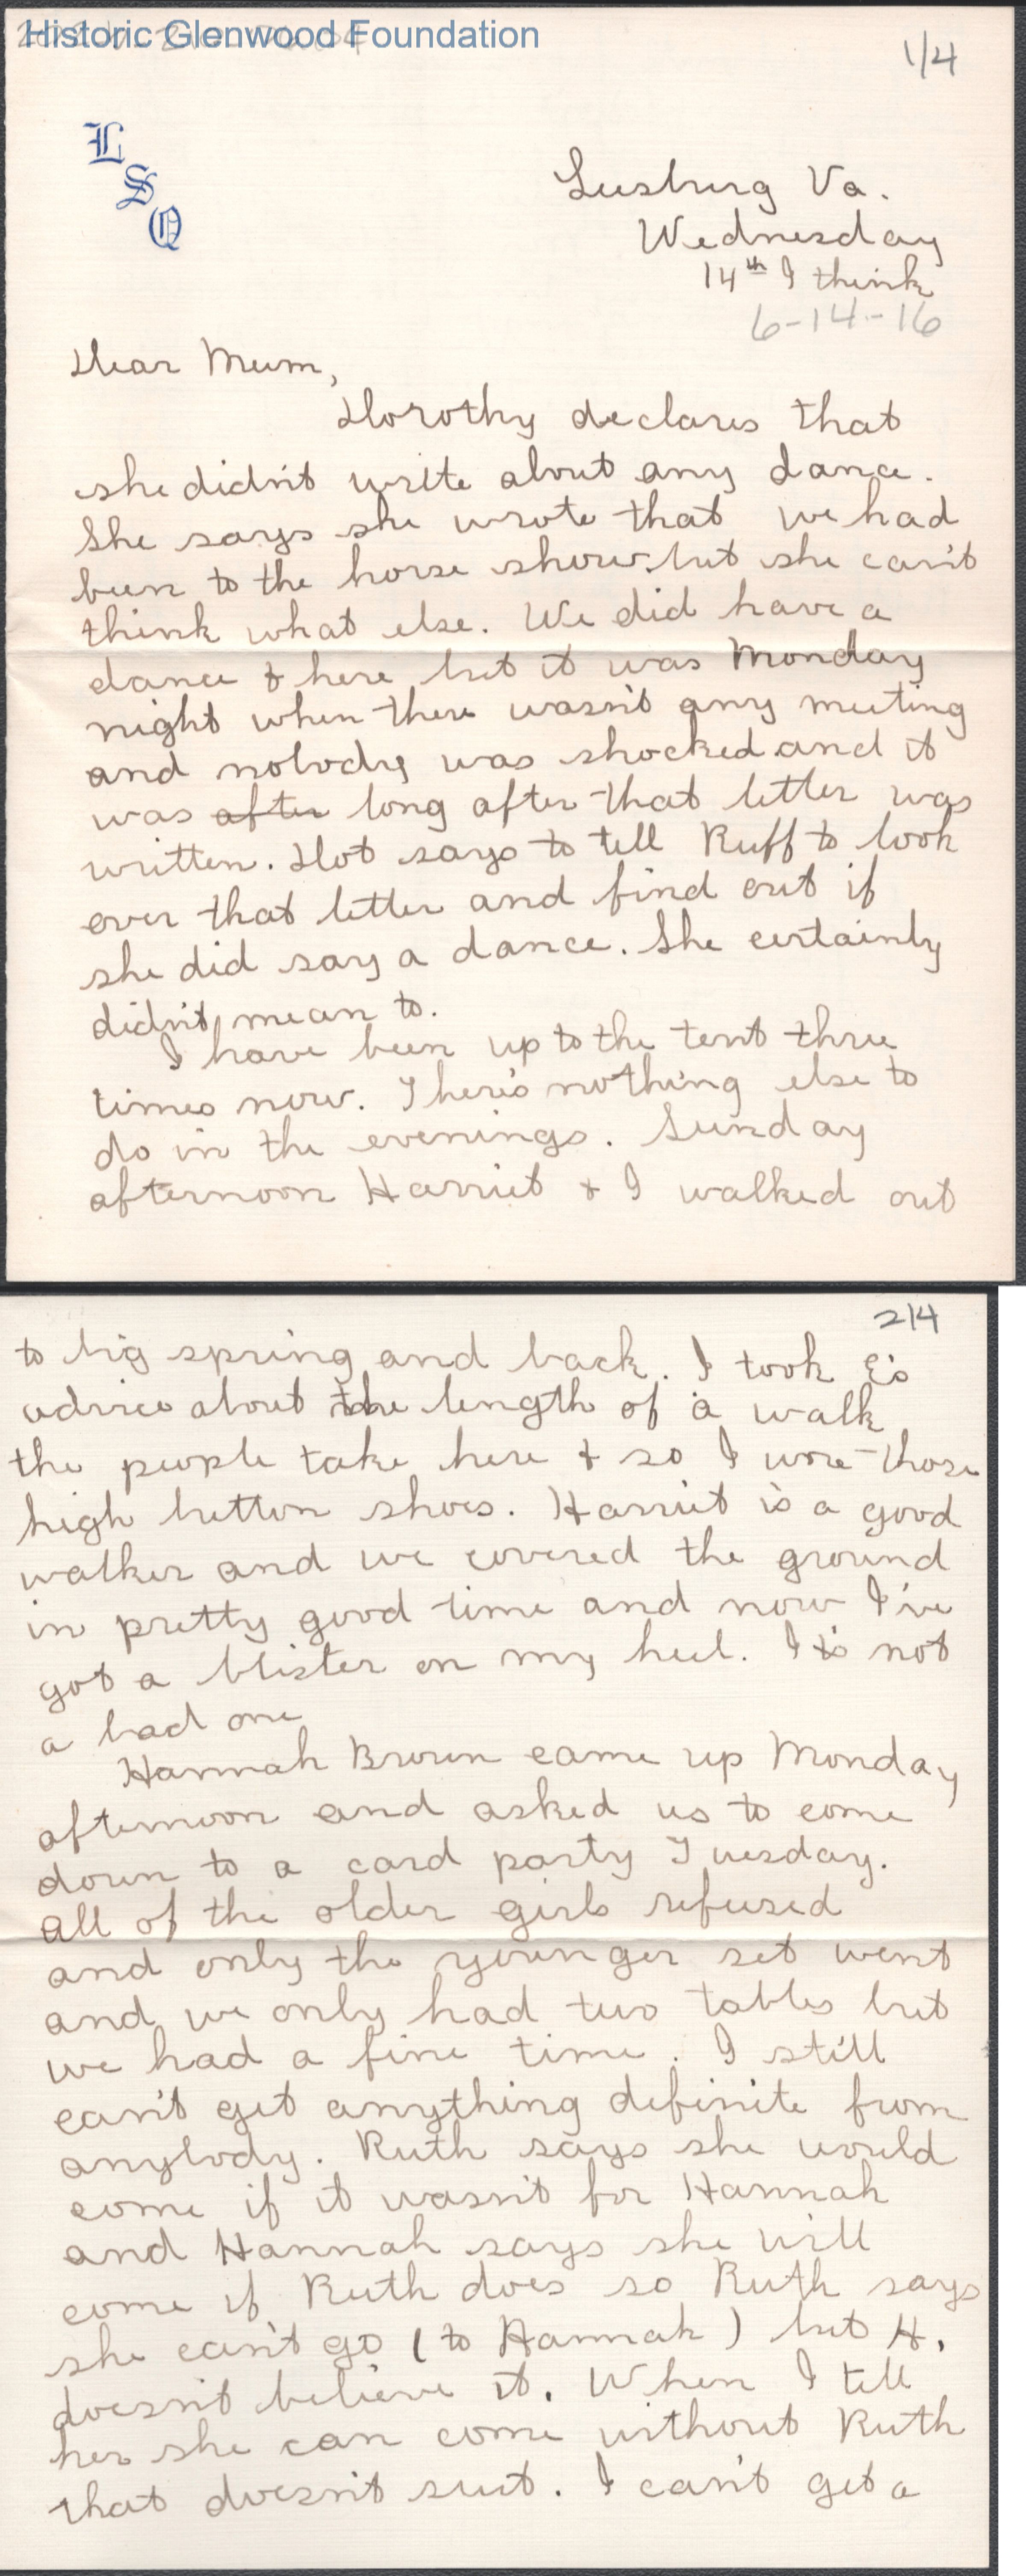 Historic Glenwood Foundation
1/4
L
S
Q
Leesburg Va.
Wednesday
14th I think
6-14-16
Dear Mum,
Dorothy declares that
she didn't write about any dance.
She says she wrote that we had
been to the horse show but she can't
think what else. We did have a
dance & here but it was Monday
night when there wasn't any meeting
and nobody was shocked and it
was after long after that letter was
written. Dot says to tell Ruff to look
over that letter and find out if
she did say a dance. She certainly
didn't mean to.
I have been up to the tent three
times now. There's nothing else to
do in the evenings. Sunday
afternoon Harriet & I walked out
2/4
to big spring and back. I took E's
advice about the length of a walk
the people take here & so I wore those
high button shoes. Harriet is a good
walker and we covered the ground
in pretty good time and now I've
got a blister on my heel. Its not
a bad one
Hannah Brown came up Monday
afternoon and asked us to come
down to a card party Tuesday.
All of the older girls refused
and only the younger set went
and we only had two tables but
we had a fine time. I still
can't get anything definite from
anybody. Ruth says she would
come if it wasn't for Hannah
and Hannah says she will
come if Ruth does so Ruth says
she can't go (to Hannah) but H.
doesn't believe it. When I tell
her she can come without Ruth
that doesn't suit. I can't get a